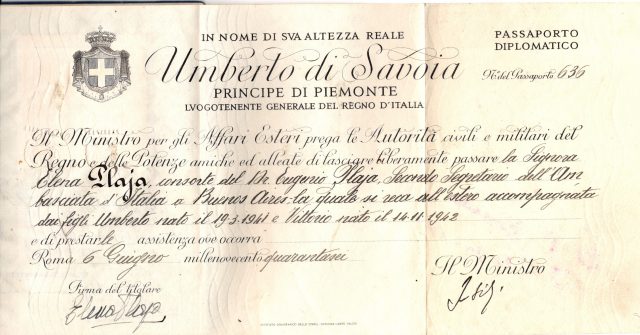 IN NOME DI SVA ALTEZZA REALE
Umberto di Savoia
PRINCIPE DI PIEMONTE
LVOGOTENENTE GENERALE DEL REGNO D'ITALIA
PASSAPORTO
DIPLOMATICO
N. del Passaporto 636
Il Ministro per gli Affari Esteri prega le Autorità civili e militari del
Regno e delle Potenze amiche ed alleate di lasciare liberamente passare la Signora
Elena Plaja, consorte del Dr. Eugenio Plaja, Secondo Segretario dell'Am
basciata d'Italia a Buenos Aires, la quale si reca all'estero accompagnata
dai figli Umberto nato il 19.3.1941 e Vittorio nato il 14.11.1942
e di prestarle assistenza ove occorra
Roma 6 Guigno millenovecento quarantasei
Il Ministro
Firma del titolare
Elena Plaja